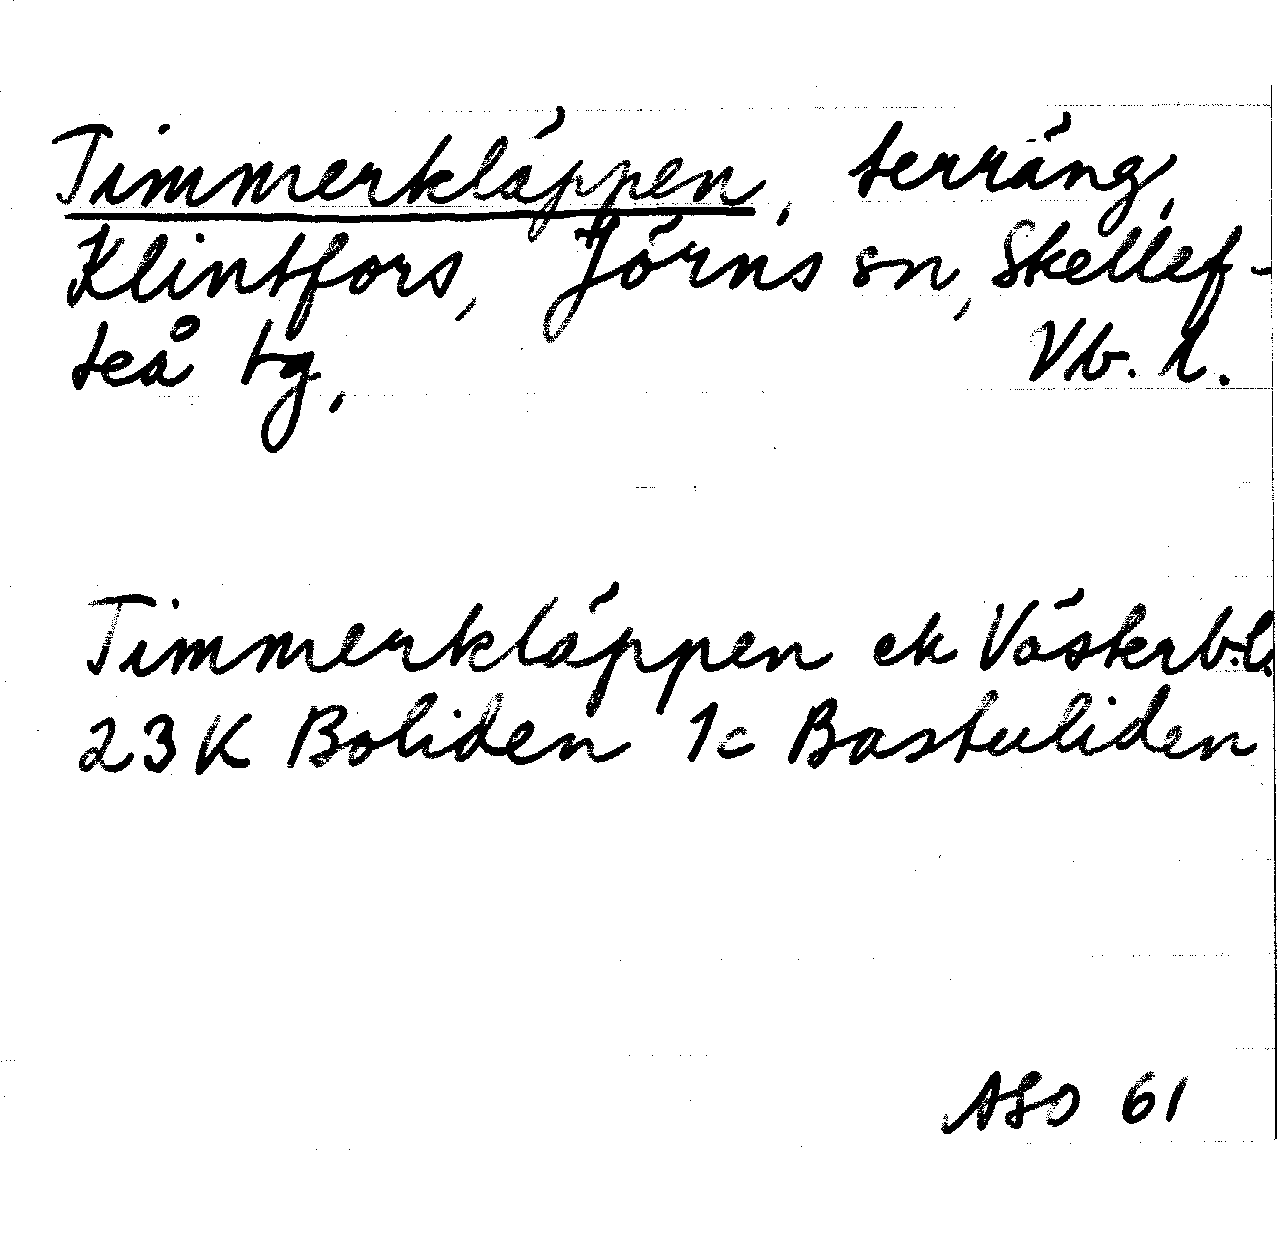 Timmerkläppen, terräng,
Klintfors, Jörns sn, Skellef-
teå tg, Vb. l.
Timmerkläppen ek Västerb.l.
23 K Boliden 1c Bastuliden
ASO 61